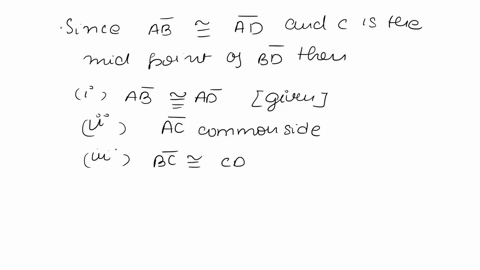 Since AB̅ ≅ AD̅ and c is the
mid point of BD̅ then
(i) AB̅ ≅ AD̅ [given]
(ii) AC̅ common side
(iii) BC̅ ≅ CD